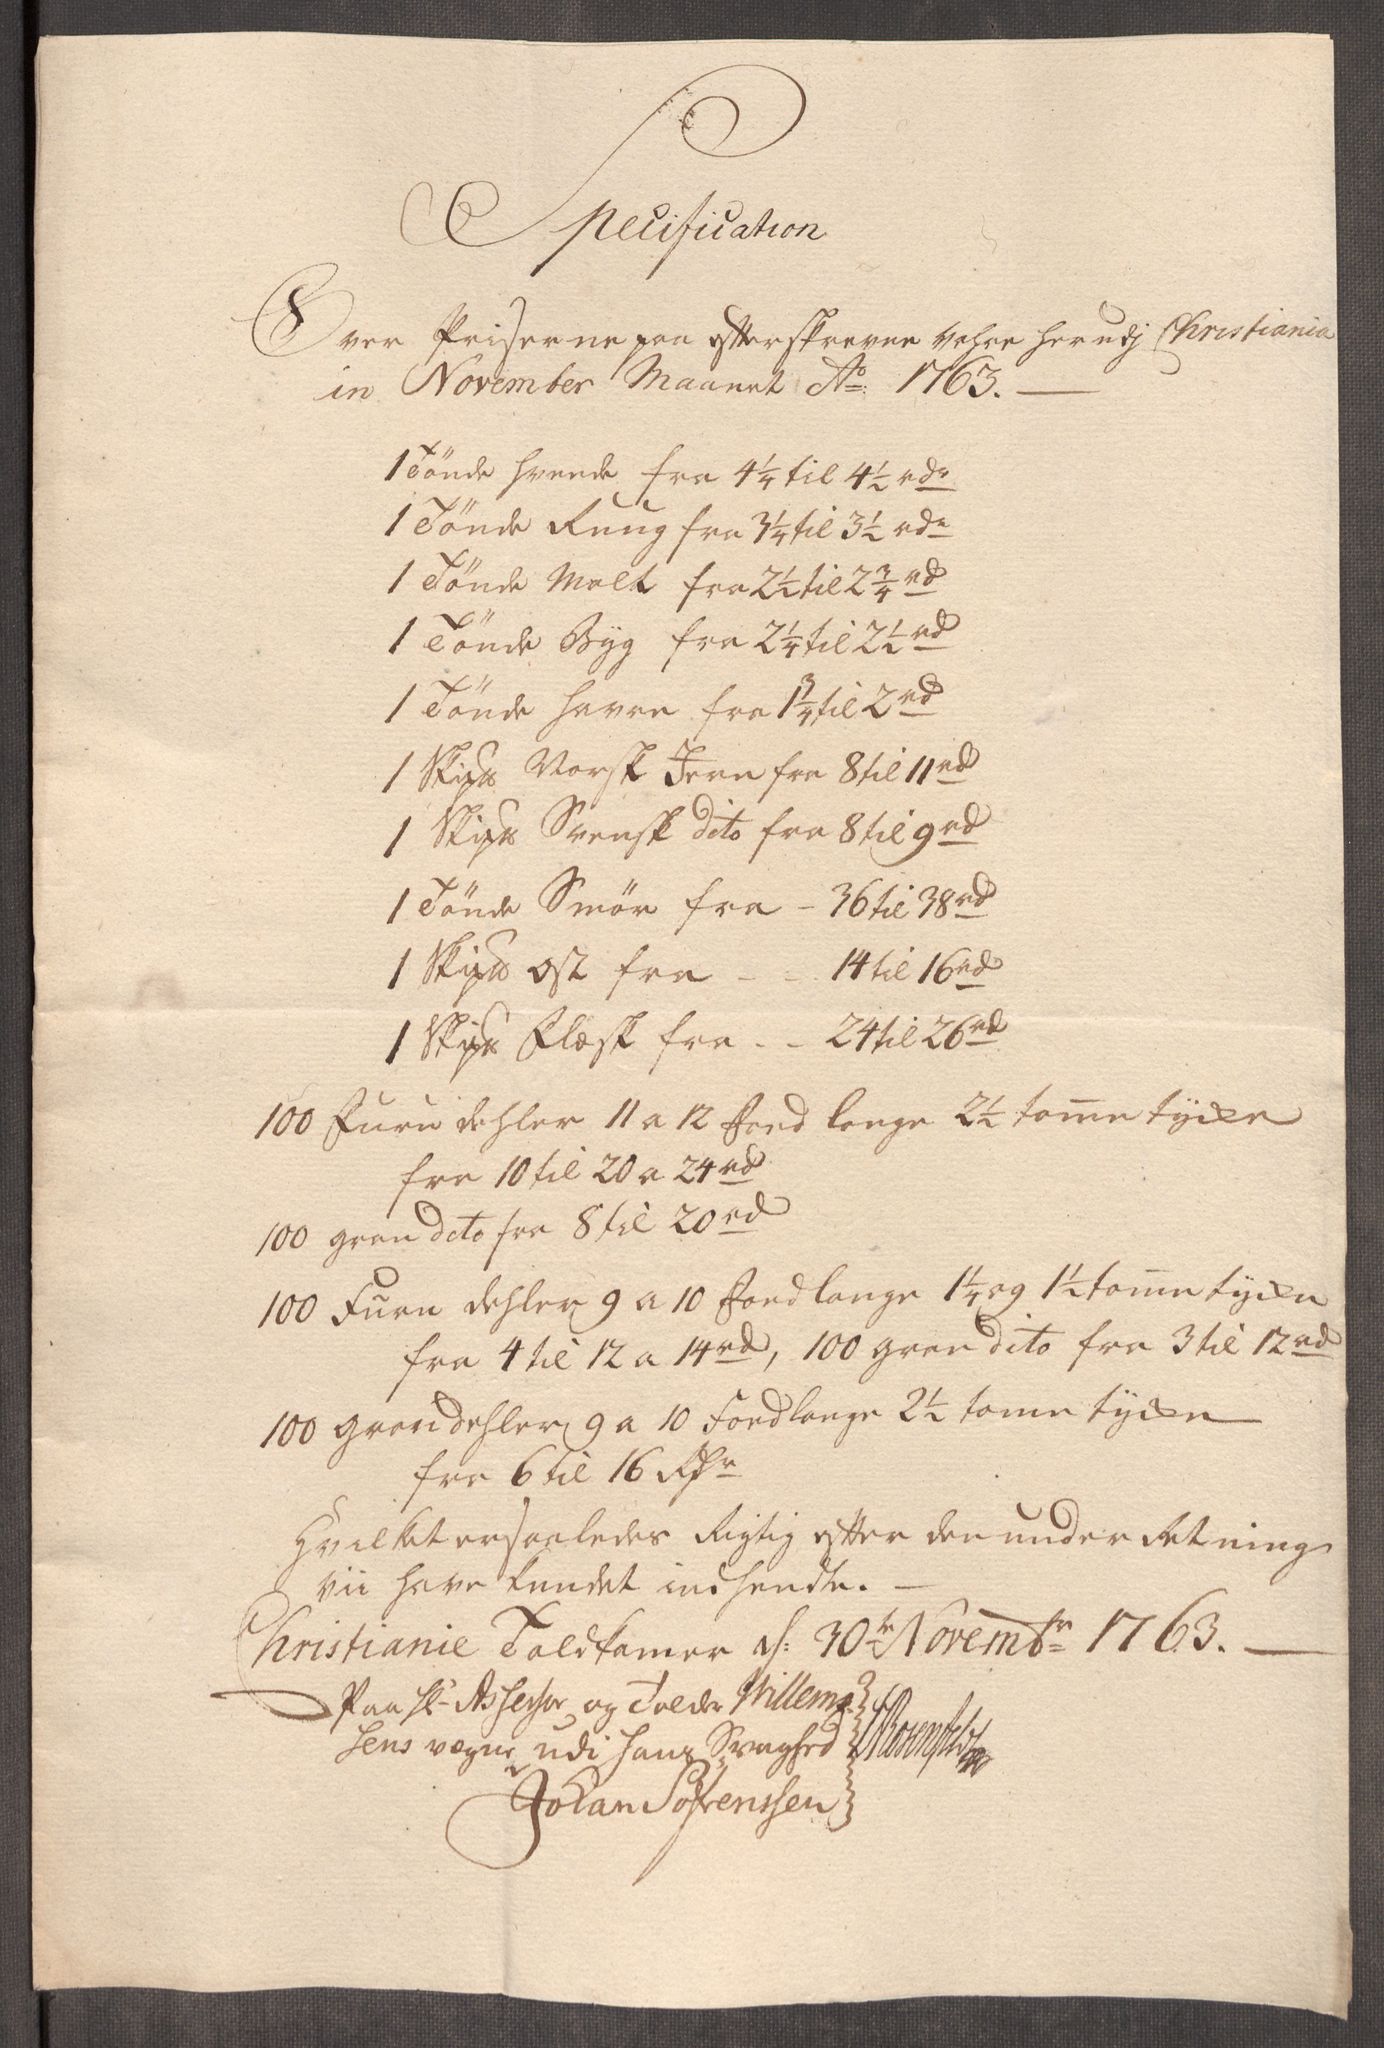 Specification
Over Priserne paa efterskrevne vahre her udj Christiania
in November Maanet Ao: 1763. —
1 Tönde hvede fra 4 1/4 til 4 1/2 rdr
1 Tönde Ruug fra 3 1/4 til 3 1/2 rdr
1 Tönde Malt fra 2 1/2 til 2 3/4 rd
1 Tönde Byg fra 2 1/4 til 2 1/2 rd
1 Tönde havre fra 1 3/4 til 2 rd
1 Skip℔ Norsk Jern fra 8 til 11 rd
1 Skip℔ Svensk dito fra 8 til 9 rd
1 Tönde Smör fra - 36 til 38 rd
1 Skip℔ ost fra - - 14 til 16 rd
1 Skip℔ Flæsk fra - - 24 til 26 rd
100 Furu dehler 11 a 12 foed lange 2 1/2 tom̄e tycke
fra 10 til 20 a 24 rd
100 gran dito fra 8 til 20 rd
100 Furu dehler 9 a 10 foed lange 1 1/4 og 1 1/2 tom̄e tycke
fra 4 til 12 a 14 rd, 100 gran dito fra 3 til 12 rd
100 gran dehler 9 a 10 Foed lange 2 1/2 tome tycke
fra 6 til 16 Rdr
Hvilket er saaledes Rigtig efter den underretning
vii have kundet indhendte. —
Christianie Toldkamer d: 30te Novembr 1763. —
Paa Hr Assessor og Tolder Willem-
sens vegne udi hans Svaghed
Johan Sörenssen